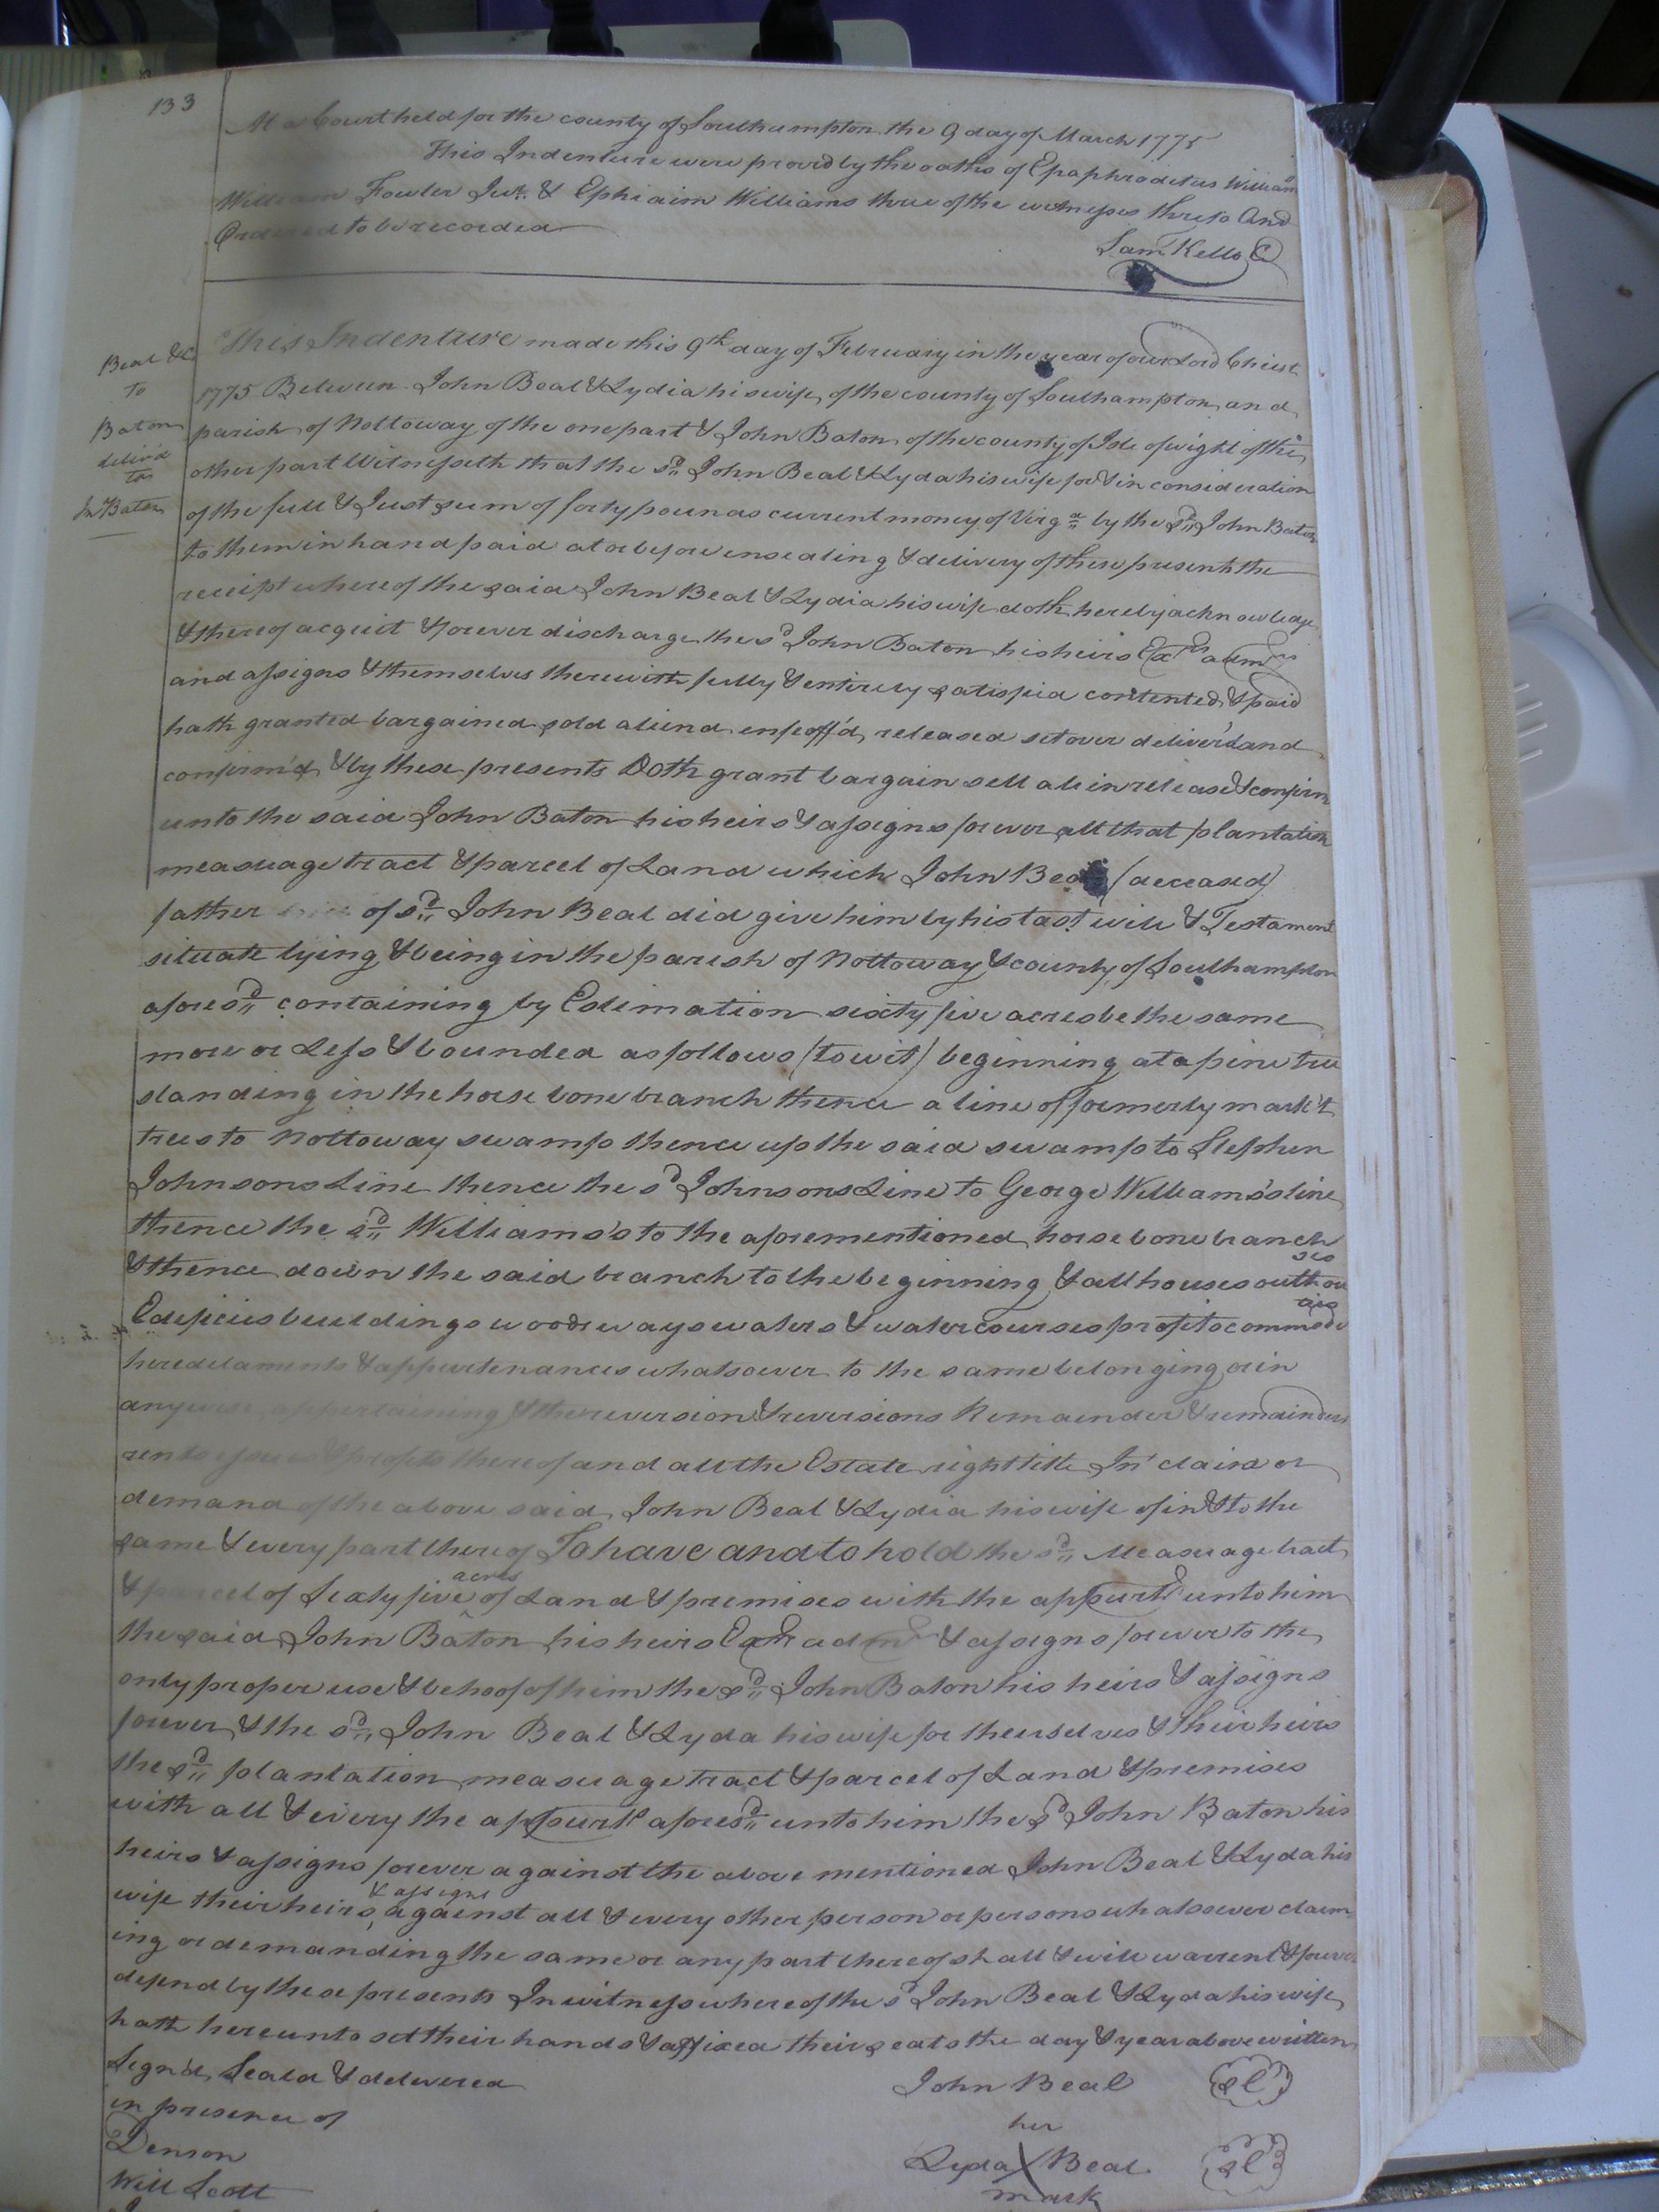 133
At a Court held for the county of Southampton the 9 day of March 1775
This Indenture were provd by the oaths of Epaphroditus Williams
William Fowler Junr. & Ephraim Williams three of the witnesses thereto And
Ordered to be recorded
Sam. Kello C
Beal &c
to
Baton
deliv'd
to
Jn Baton
This Indenture made this 9th day of February in the year of our Lord Christ
1775 Between John Beal & Lydia his wife, of the county of Southampton, and
parish of Nottoway of the one part & John Baton of the county of Isle of wight of the
other part Witnesseth that the sd John Beal & Lyda his wife for & in consideration
of the full & Just sum of forty pounds current money of Virga by the sd John Baton
to them in hand paid at or before ensealing & delivery of these presents the
receipt whereof the said John Beal & Lydia his wife doth hereby acknowledge
& thereof acquit & forever discharge the sd John Baton his heirs Exrs admrs
and assigns & themselves therewith fully & entirely satisfied contented & paid
hath granted bargained sold aliend enfeoff'd, released set over deliver'd and
confirm'd & by these presents Doth grant bargain sell alien release & confirm
unto the said John Baton his heirs & assigns forever all that plantation
measuage tract & parcel of Land which John Beal (deceased)
father of sd John Beal did give him by his last will & Testament
situate lying & being in the parish of Nottoway & county of Southampton
aforesd containing by Estimation sixty five acres be the same
more or Less & bounded as follows (to wit) beginning at a pine tree
standing in the horse bone branch thence a line of formerly mark't
trees to Nottoway swamp thence up the said swamp to Stephen
Johnsons Line thence the sd Johnsons Line to George Williams's line
thence the sd Williams's to the aforementioned horse bone branch
& thence down the said branch to the beginning & all houses outhouses
Edificies buildings woods ways waters & watercourses profits commodities
heredetaments & appurtenances whatsoever to the same belonging or in
anywise appertaining & the reversion & reversions Remainder & remainders
rents issues & profits thereof and all the Estate right title Int claim or
demand of the above said John Beal & Lydia his wife of in & to the
same & every part thereof To have and to hold the sd Measuage tract
& parcel of Sixty five acres of Land & premises with the appurts unto him
the said John Baton his heirs Exrs admrs & assigns forever to the
only proper use & behoof of him the sd John Baton his heirs & assigns
forever & the sd John Beal & Lyda his wife for theirselves & their heirs
the sd plantation measuage tract & parcel of Land & premises
with all & every the appurts aforesd unto him the sd John Baton his
heirs & assigns forever against the above mentioned John Beal & Lyda his
wife their heirs & assigns against all & every other person or persons whatsoever claim-
ing or demanding the same or any part thereof shall & will warrent & forever
defend by these presents In witness whereof the sd John Beal & Lyda his wife
hath hereunto set their hands & affixed their seals the day & year above written
Sign'd, Seald & delivered
in presence of
Denson
Will Scott
John Beal
her
Lyda X Beal
mark